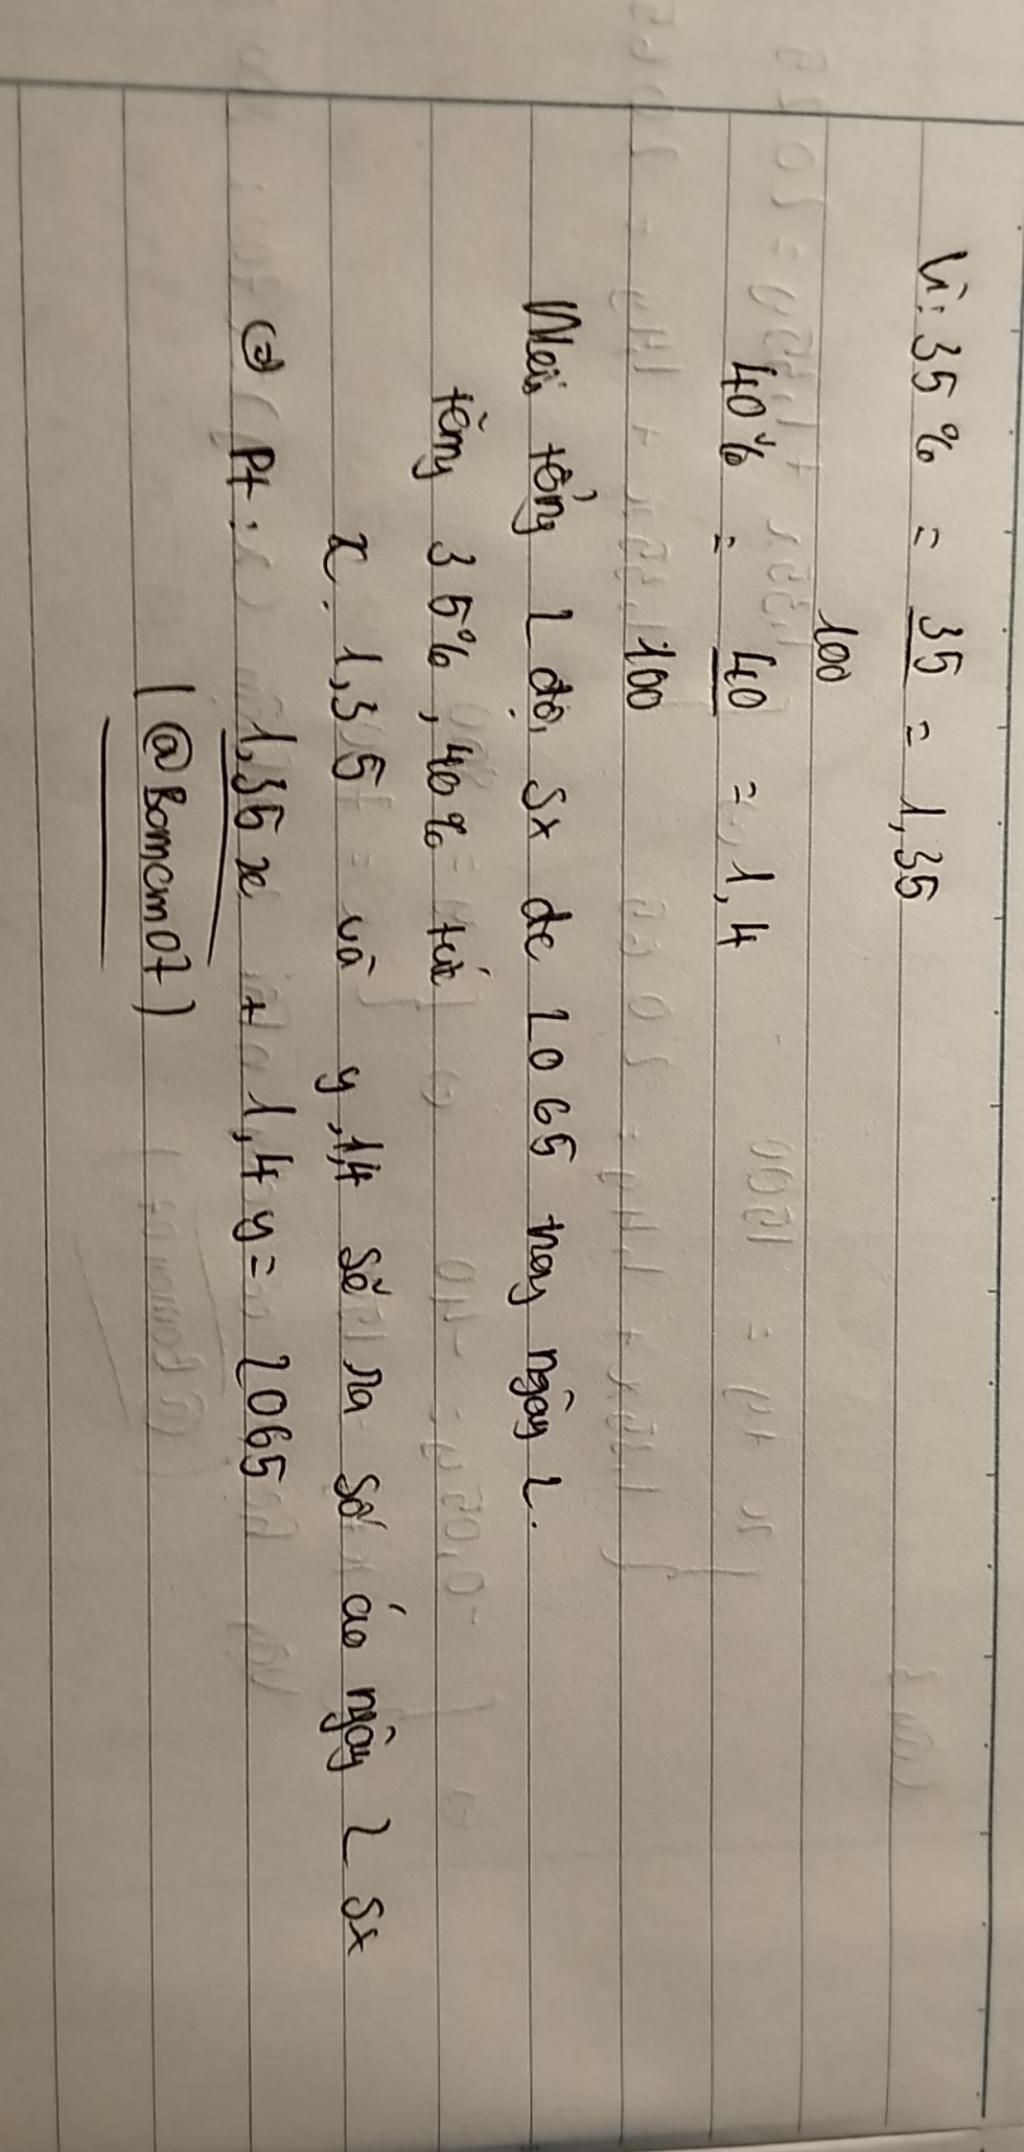 Vì: 35% = 35 = 1,35
100
40% = 40 = 1,4
100
Mà tổng 2 đội sx đc 2065 trong ngày 2.
tăng 35%, 40% tức
x. 1,35 và y.1,4 sẽ ra số áo ngày 2 sx
Pt: 1,35x + 1,4y = 2065
(@Bomcm07)